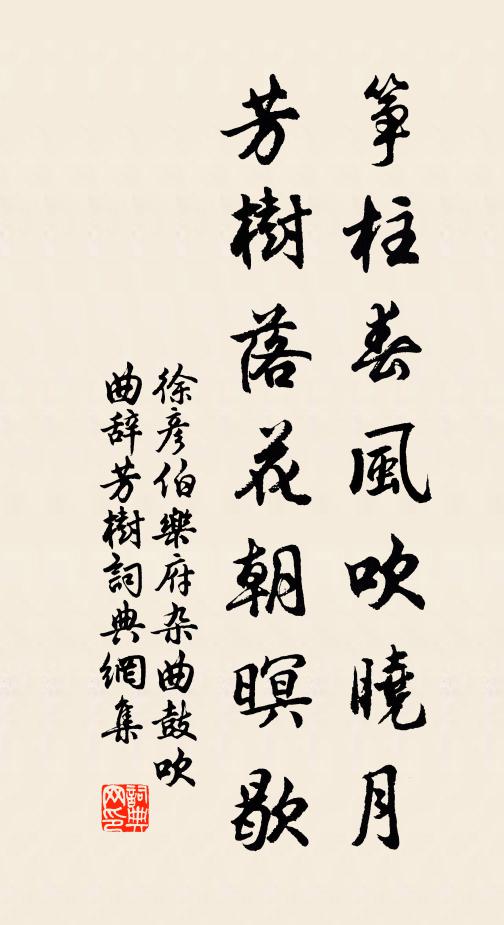 筝柱春風吹曉月
芳樹落花朝暝歇
徐彦伯樂府杂曲鼓吹
曲辞芳樹詞典網集
詞典网印